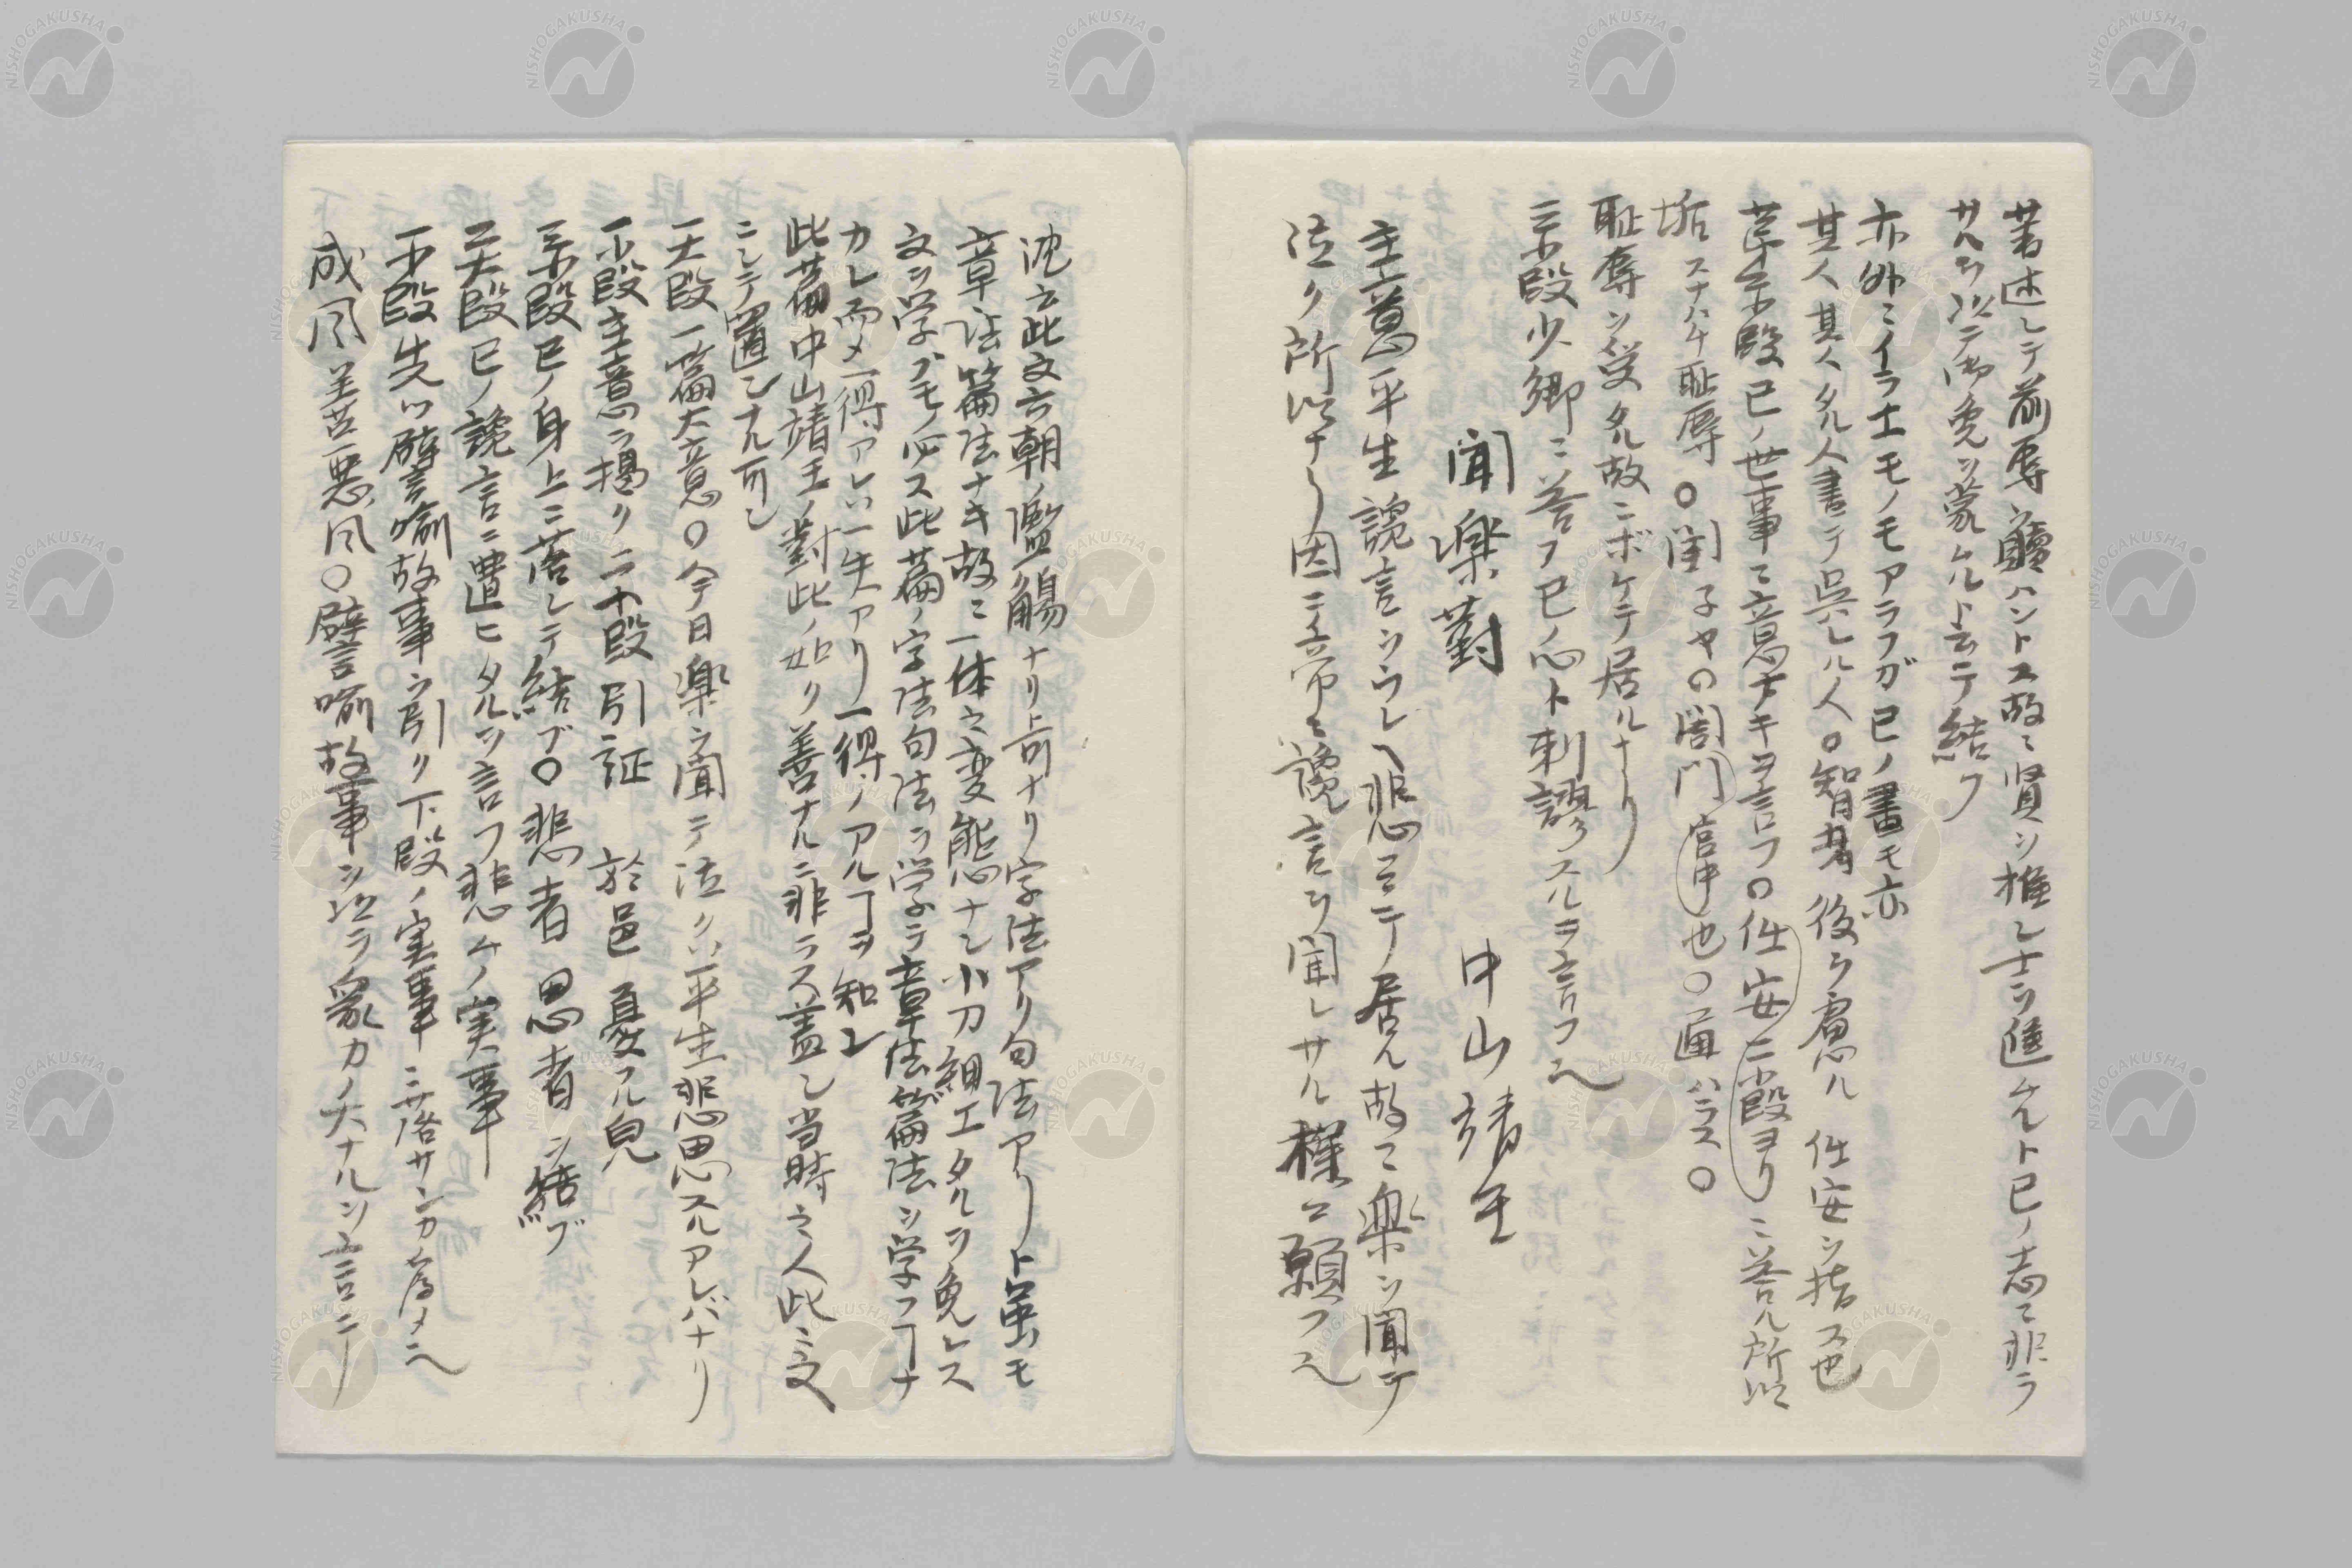 著述シテ前辱ヲ贖ハントス故ニ賢ヲ推シ士ヲ進ケルト已ノ志ニ非ラ
サヘヲ以テ免ヲ蒙ケルト云テ結フ
亦外ニイラ士モノモアラフガ已ノ書モ亦
其人其人タル人書テ呉レル人〇智者後ヲ慮ル 任安ヲ指ス也
第 小段已ノ世事ニ意ナキヲ言フ〇任安ニ小段ヨリニ答ル所以
垢スナハチ耻辱〇閨 子ヤの閤門官中也〇 ハラス〇
耻辱ヲ受タル故ニボケテ居ルナリ
三小段少卿ニ答フ已ノ心ト剌謬スルヲ言フ
聞楽對 中山靖王
主意平生讒言ヲ 悲ミテ居ル故ニ楽ヲ聞テ
泣ク所以ナリ因テ帝ニ讒言ヲ聞レサル様ニ願フ
沈云此文六朝ノ濫觴ナリ 字法アリ句法アリト虽モ
章法篇法ナキ故ニ一体之変態ナシ小刀細工タルヲ免レス
文ヲ学ブモノ必ス此篇ノ字法句法ヲ学テ章法篇法ヲ学フヿナ
カレ而メ一得アレハ一失アリ一得ノアルヿヲ知レ
此篇中山靖王ノ對此ノ如ク善ナルニ非ラス蓋シ当時之人此ニ
ニシテ置シナル可シ
一大段一篇大意〇今日楽ヲ聞テ泣クハ平生悲思スルアレバナリ
一小段主意ヲ揚ク 二小段引証 於邑憂フル皃
三小段已ノ身上ニ落シテ結ブ〇悲者思者ヲ結ブ
二大段已ノ讒言ニ遭ヒタルヲ言フ悲ケノ実事
一小段先ハ譬喩故事ヲ引ク下段ノ実事ニ落サンカ為メ
成風 悪風〇譬喩故事ヲ以ラ衆カノ大ナルヲ言